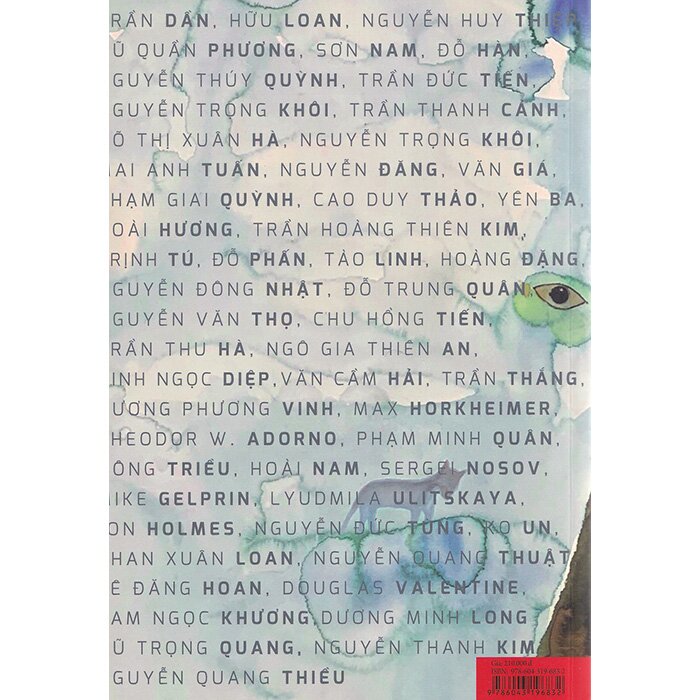 RẦN DẦN, HỮU LOAN, NGUYỄN HUY THIỆP
Ũ QUẦN PHƯƠNG, SƠN NAM, ĐỖ HÀN,
GUYỄN THÚY QUỲNH, TRẦN ĐỨC TIẾN,
GUYỄN TRỌNG KHÔI, TRẦN THANH CẢNH,
Õ THỊ XUÂN HÀ, NGUYỄN TRỌNG KHÔI,
AI ANH TUẤN, NGUYỄN ĐĂNG, VĂN GIÁ,
HẠM GIAI QUỲNH, CAO DUY THẢO, YÊN BA,
OÀI HƯƠNG, TRẦN HOÀNG THIÊN KIM,
RỊNH TÚ, ĐỖ PHẤN, TÀO LINH, HOÀNG ĐẶNG,
GUYỄN ĐÔNG NHẬT, ĐỖ TRUNG QUÂN,
GUYỄN VĂN THỌ, CHU HỒNG TIẾN,
RẦN THU HÀ, NGÔ GIA THIÊN AN,
INH NGỌC DIỆP,VĂN CẦM HẢI, TRẦN THẮNG,
ƯƠNG PHƯƠNG VINH, MAX HORKHEIMER,
HEODOR W. ADORNO, PHẠM MINH QUÂN,
ÔNG TRIỀU, HOÀI NAM, SERGEI NOSOV,
IKE GELPRIN, LYUDMILA ULITSKAYA,
ON HOLMES, NGUYỄN ĐỨC TÙNG, KO UN,
HAN XUÂN LOAN, NGUYỄN QUANG THUẬT
Ê ĐĂNG HOAN, DOUGLAS VALENTINE,
AM NGỌC KHƯƠNG DƯƠNG MINH LONG
Ũ TRỌNG QUANG, NGUYỄN THANH KIM
GUYỄN QUANG THIỀU
Giá: 210.000 đ
ISBN: 978-604-319-683-2
9 786043 196832